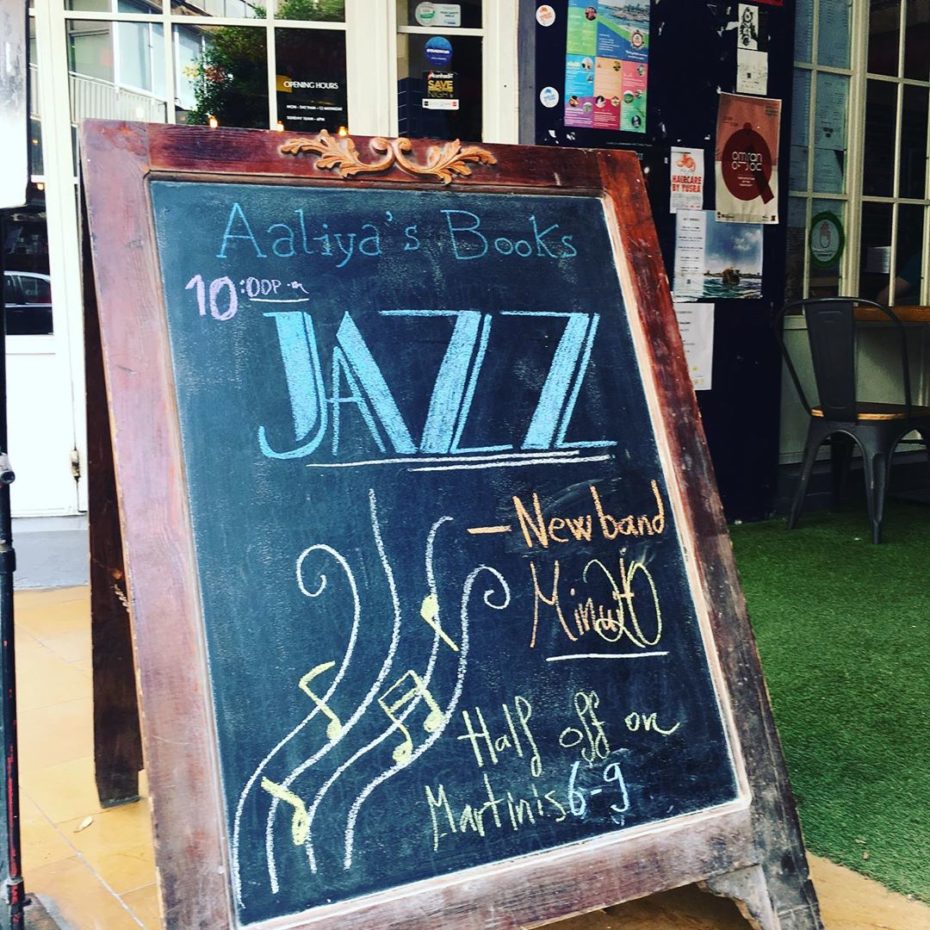 OPENING HOURS
SAVE
omran
HAIRCARE
BY YUSRA
Aaliya's Books
10:00P.m
JAZZ
- New band
Half off on
Martinis 6-9